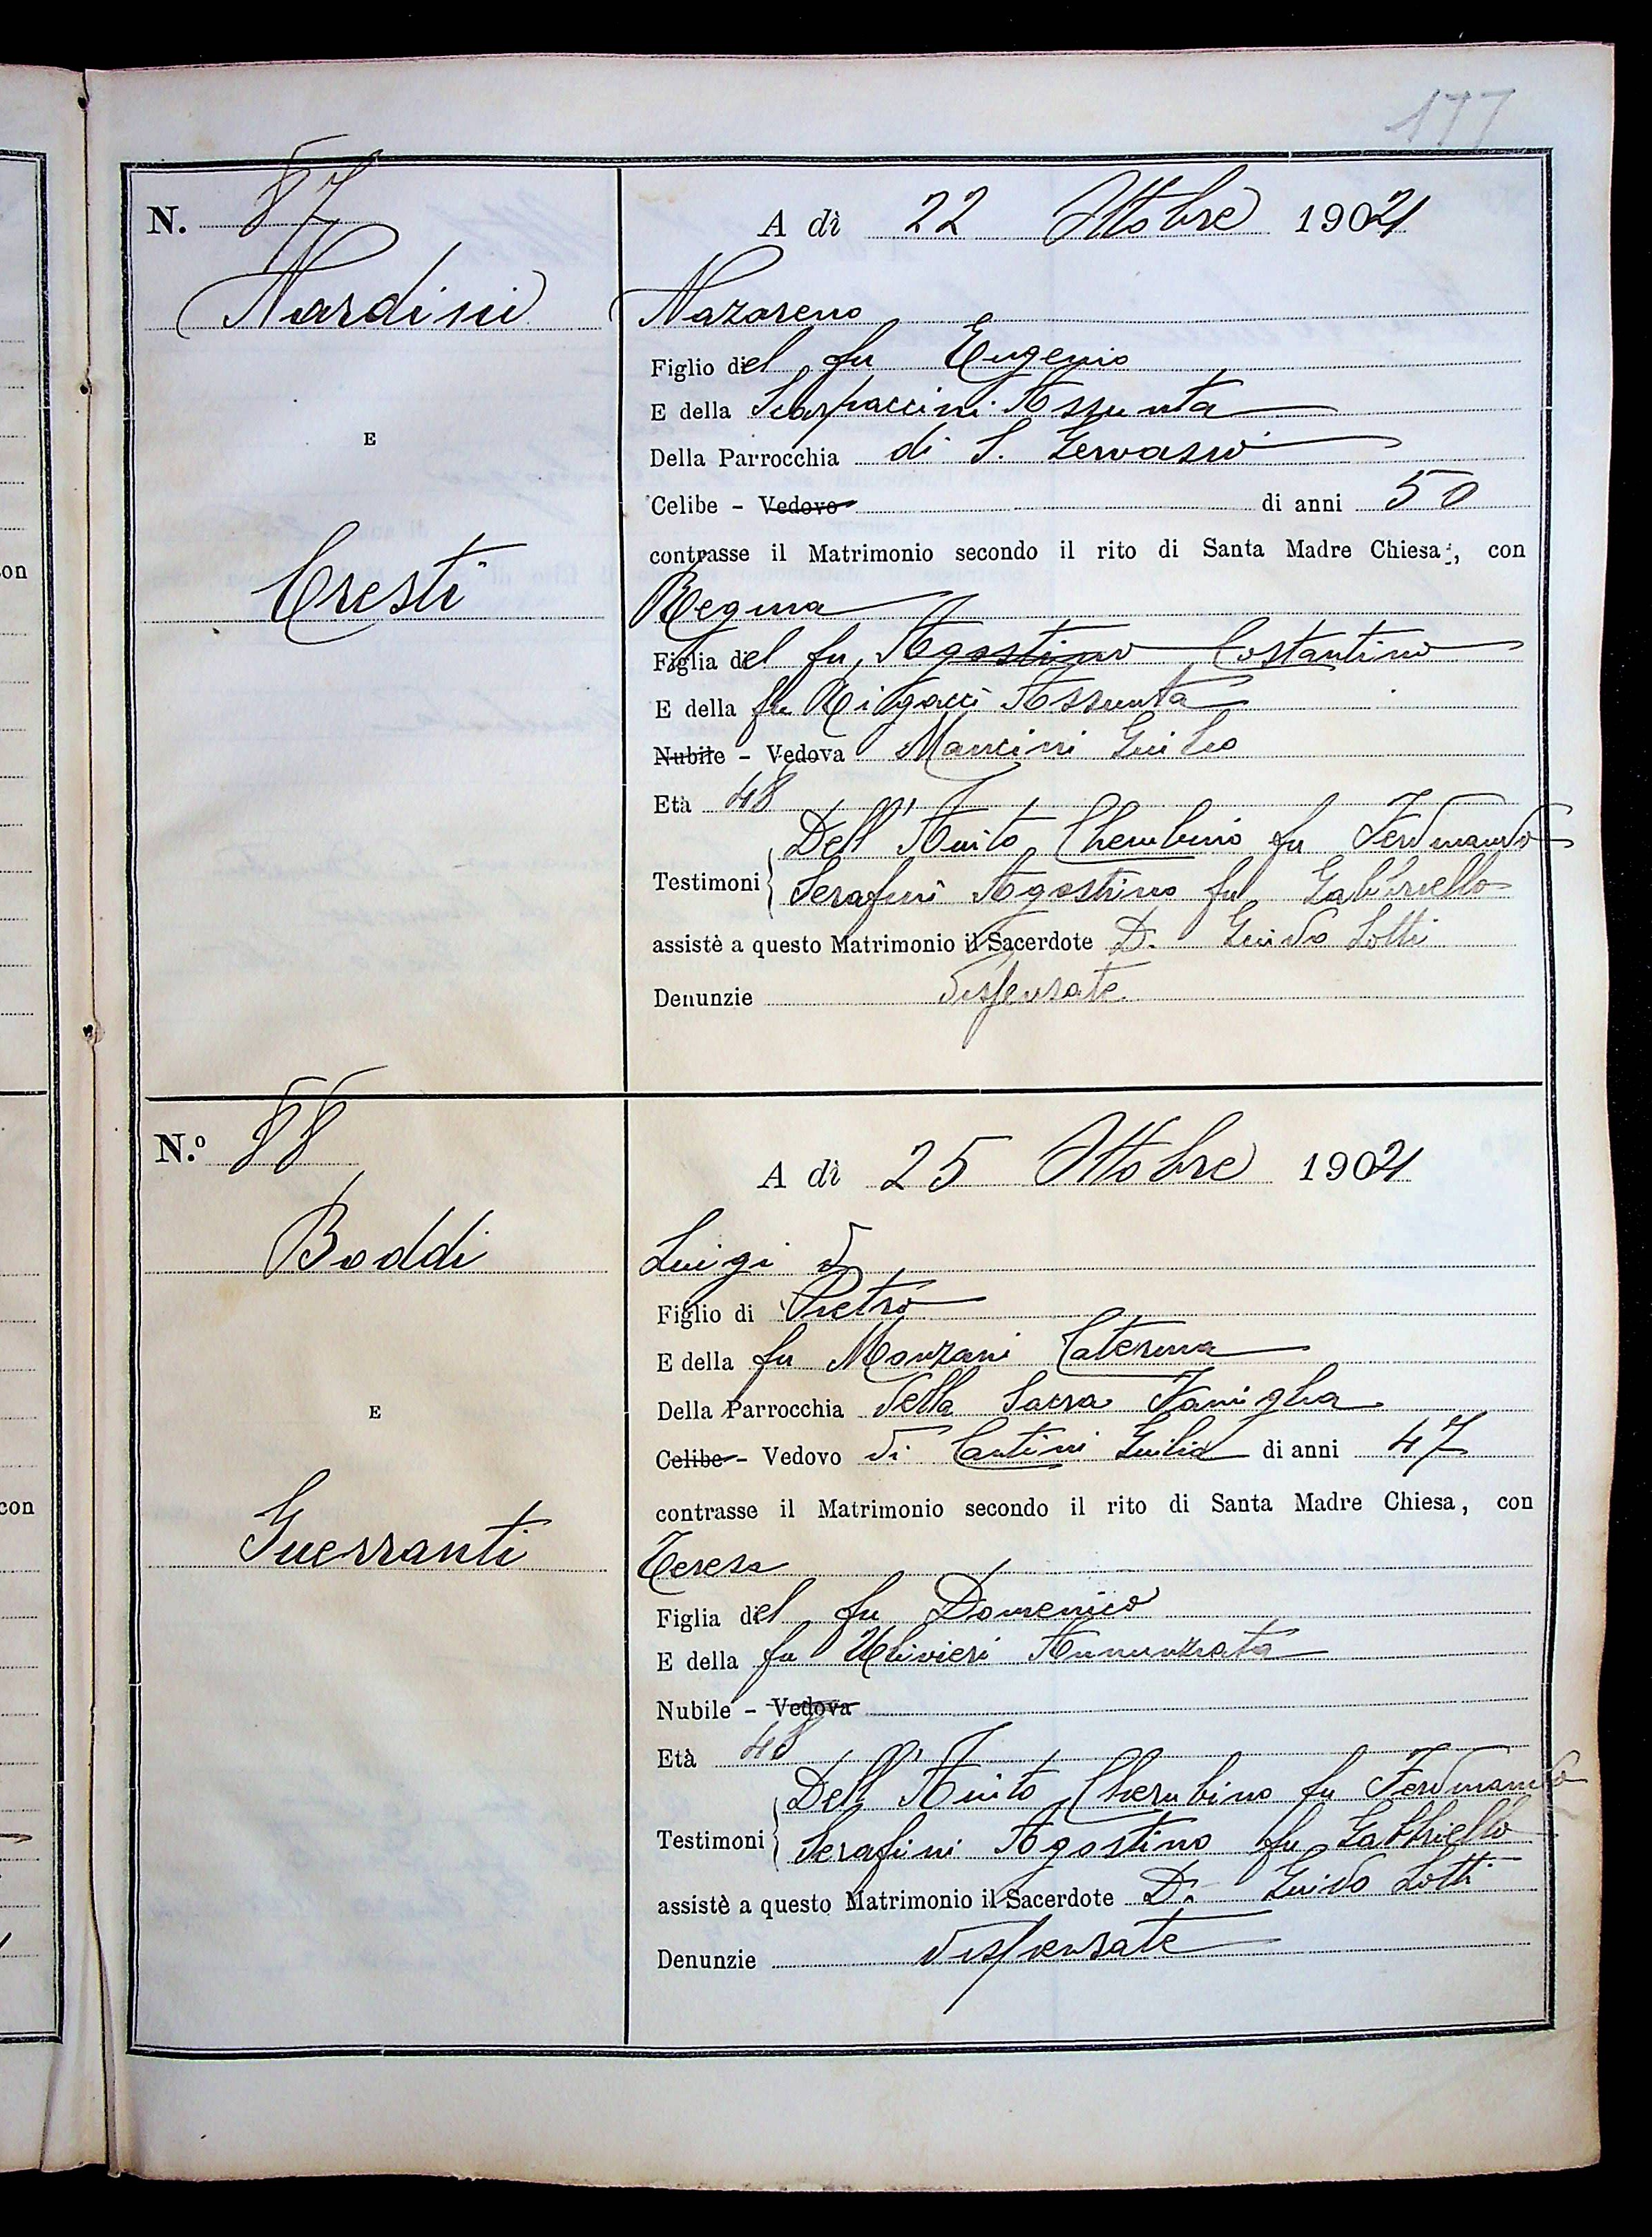 177
N. 87
A dì 22 Ottobre 1921
Nardini
Nazareno
Figlio del fu Eugenio
E della Scarpaccini Assunta
Della Parrocchia di S. Gervasio
E
Celibe - Vedovo di anni 50
contrasse il Matrimonio secondo il rito di Santa Madre Chiesa, con
Cresti
Regina
Figlia del fu Agostino Costantino
E della fu Assunta
Nubile - Vedova Mancini Guido
Età 48
Dell'Avito Cherubino fu Ferdinando
Testimoni
Serafini Agostino fu Gabbriello
assistè a questo Matrimonio il Sacerdote D. Guido Lotti
Denunzie dispensate
N.º 88
A dì 25 Ottobre 1921
Boddi
Luigi di
Figlio di Pietro
E della fu Manzani Caterina
Della Parrocchia della Sacra Famiglia
E
Celibe - Vedovo di Cantini Giulia di anni 47
contrasse il Matrimonio secondo il rito di Santa Madre Chiesa, con
Guerranti
Teresa
Figlia del fu Domenico
E della fu Ulivieri Annunziata
Nubile - Vedova
Età 48
Dell'Avito Cherubino fu Ferdinando
Testimoni
Serafini Agostino fu Gabbriello
assistè a questo Matrimonio il Sacerdote D. Guido Lotti
Denunzie dispensate
con
con